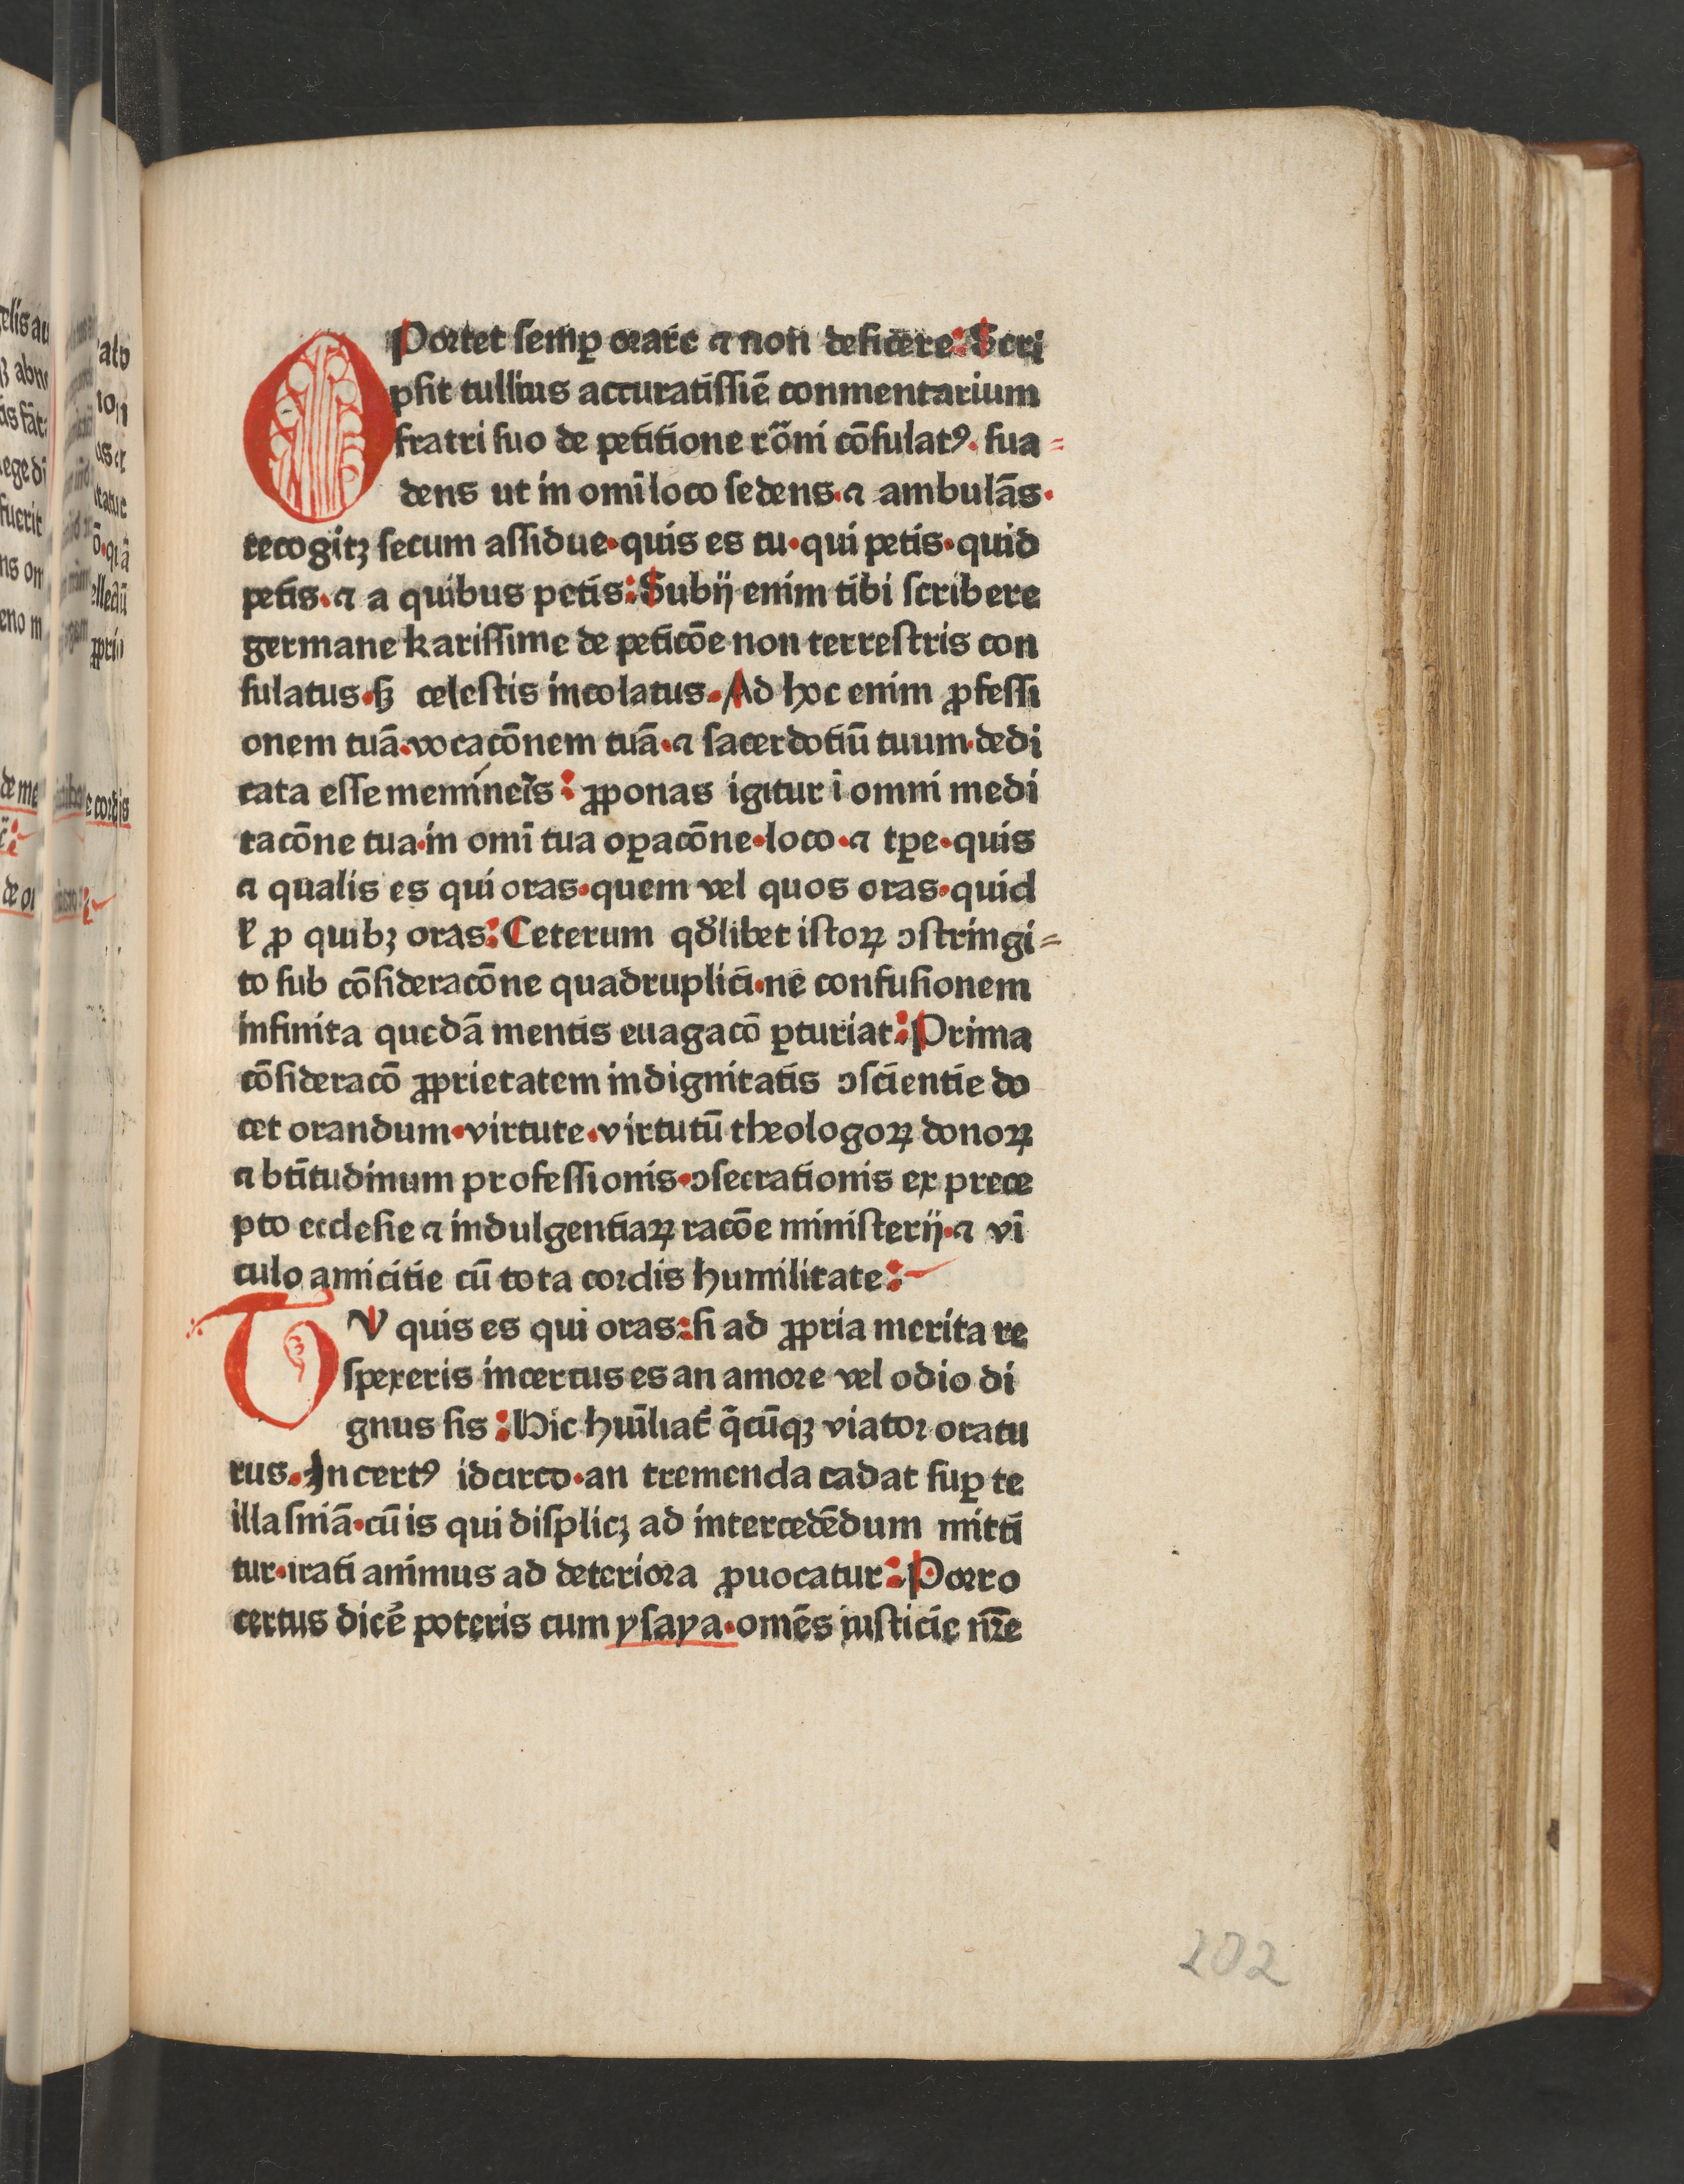 OPortet semꝑ orare ⁊ non deficere: Scri
psit tullius accuratissīe conmentarium
fratri suo de petitione rōni cōsulatꝰ. sua⸗
dens ut in omī loco sedens. ⁊ ambulās.
recogitꝫ secum assidue. quis es tu. qui petis. quid
petis. ⁊ a quibus petis: Subij enim tibi scribere
germane karissime de peticōe non terrestris con
sulatus. sꝫ celestis incolatus. Ad hoc enim ꝓfessi
onem tuā. vocacōnem tuā. ⁊ sacerdotiū tuum. dedi
cata esse memineīs: ꝓponas igitur ī omni medi
tacōne tua. in omī tua oꝑacōne. loco. ⁊ tꝑe. quis
⁊ qualis es qui oras. quem vel quos oras. quid
ꝉ ꝓ quibꝫ oras: Ceterum qd̛libet istoꝝ ↄstringi⸗
to sub cōsideracōne quadruplici. ne confusionem
infinita quedā mentis euagacō ꝑturiat: Prima
cōsideracō ꝓprietatem indignitatis ↄscientie do
cet orandum. virtute. virtutū theologoꝝ donoꝝ
⁊ btītudinum professionis. ↄsecrationis ex prece
pto ecclesie ⁊ indulgentiaꝝ racōe ministerij. ⁊ vī
culo amicitie cū tota cordis humilitate:
TV quis es qui oras: si ad ꝓpria merita re
spexeris incertus es an amore vel odio di
gnus sis: Hic hūiliat̄ q̄cūqꝫ viator oratu
rus. Incertꝰ idcirco. an tremenda cadat suꝑ te
illa sniā. cū is qui displicꝫ ad intercedēdum mitti
tur. irati animus ad deteriora ꝓuocatur: Porro
certus dicē poteris cum ysaya. omēs iusticie nr̄e
202